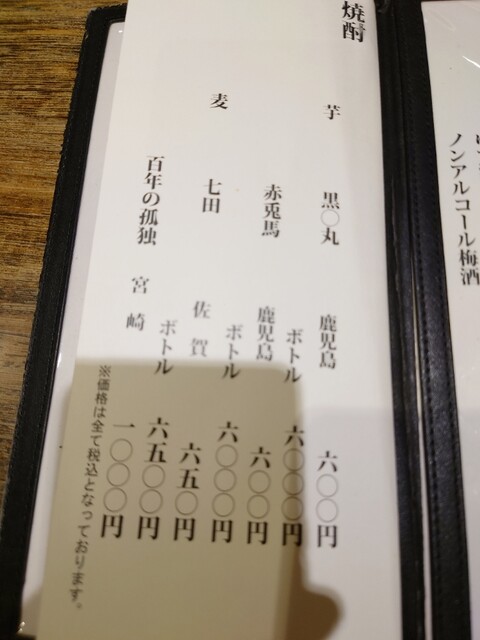 ノンアルコール梅酒
焼酎
芋 黒〇丸 鹿児島 六〇〇円
ボトル 六〇〇〇円
赤兎馬 鹿児島 六〇〇円
ボトル 六〇〇〇円
麦 七田 佐賀 六五〇円
ボトル 六五〇〇円
百年の孤独 宮崎 一〇〇〇円
※価格は全て税込となっております。